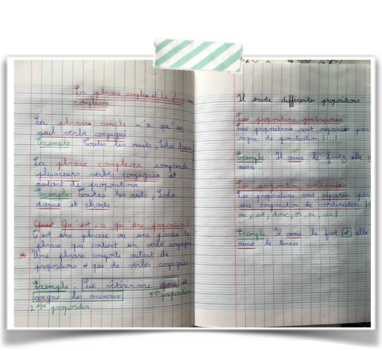 La phrase simple et la phrase
complexe
La phrase simple n'a qu'un
seul verbe conjugué
Exemple: Toutes les nuits, Lila danse
La phrase complexe comprend
plusieurs verbes conjugués et
autant de propositions
Exemple: toutes les nuits, Lila
danse et chante
Qu'est ce qu'une proposition
C'est une phrase ou une partie de
phrase qui contient un verbe conjugué
Une phrase comporte autant de
propositions que de verbe conjugués
Exemple: Le vétérinaire opère et
soigne les animaux
1ère proposition
2ème proposition
Il existe différentes propositions
Les propositions juxtaposées
Les propositions sont séparées par
signe de ponctuation
Exemple: Il aime le foot, elle
aime
Les propositions
Les propositions sont séparées par
une conjonction de coordination
ou, et, donc, or, ni, car
Exemple: Il aime le foot et elle
aime le tennis